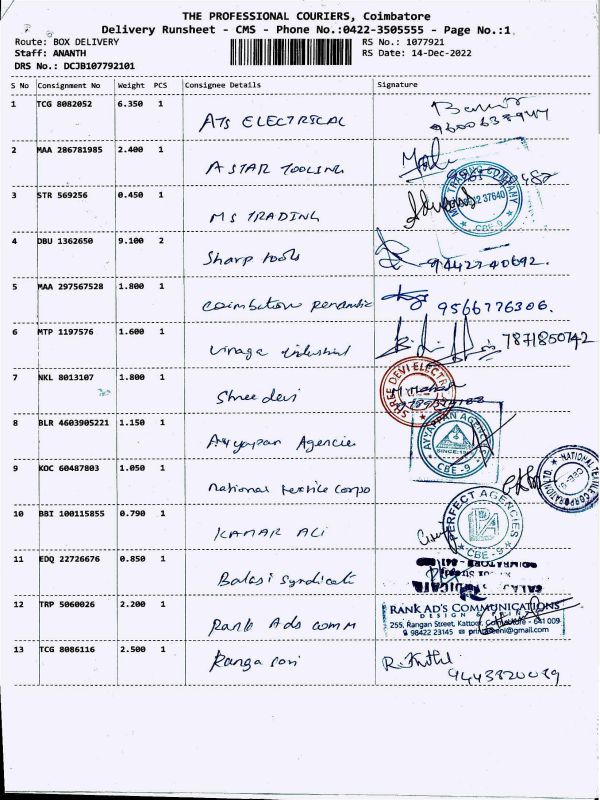 THE PROFESSIONAL COURIERS, Coimbatore
Delivery Runsheet - CMS - Phone No.:0422-3505555 - Page No.:1
Route: BOX DELIVERY
RS No.: 1077921
Staff: ANANTH
RS Date: 14-Dec-2022
DRS No.: DCJB107792101
S No Consignment No Weight PCS Consignee Details Signature
1 TCG 8082052 6.350 1
ATS ELECTRICAL
2 MAA 286781985 2.400 1
A STAR TOOLING
3 STR 569256 0.450 1
MS TRADING
CBE-9
4 DBU 1362650 9.100 2
Sharp tools
9442740692.
5 MAA 297567528 1.800 1
9566776306.
6 MTP 1197576 1.600 1
7871850742
7 NKL 8013107 1.800 1
Shree devi
SHREE DEVI ELECTR
8 BLR 4603905221 1.150 1
Ayyapan Agencies
AYYAPPAN AGENC
CBE -9
9 KOC 60487803 1.050 1
National textile corpo
10 BBI 100115855 0.790 1
KAMAR ALI
PERFECT AGENCIES
CBE -9
11 EDQ 22726676 0.850 1
Balaji Syndicate
12 TRP 5060026 2.200 1
Rank Ads comm
RANK AD'S COMMUNICATIONS
255, Rangan Street, Kattoor, Coimbatore - 641 009
98422 23145
13 TCG 8086116 2.500 1
9443820089